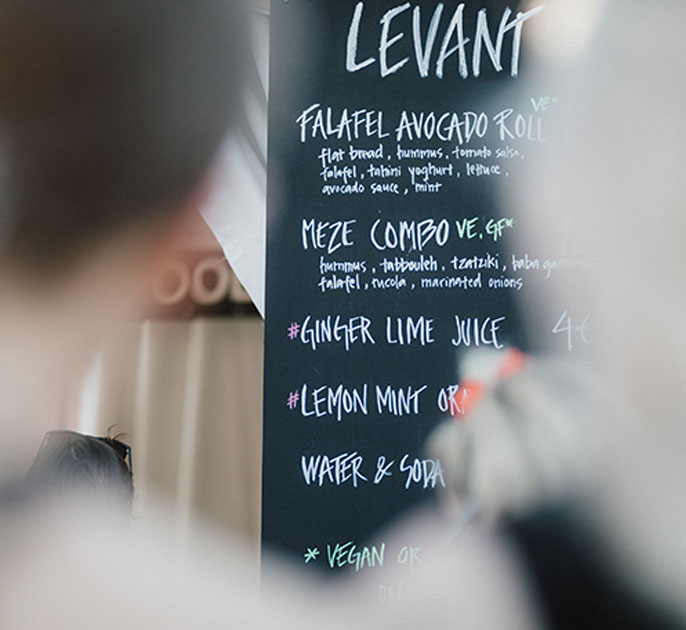 LEVANT
FALAFEL AVOCADO ROLL VE*
flat bread, hummus, tomato salsa,
falafel, tahini yoghurt, lettuce,
avocado sauce, mint
MEZE COMBO VE, GF*
hummus, tabbouleh, tzatziki, baba
falafel, rucola, marinated onions
#GINGER LIME JUICE 4€
#LEMON MINT
WATER & SODA
* VEGAN OR